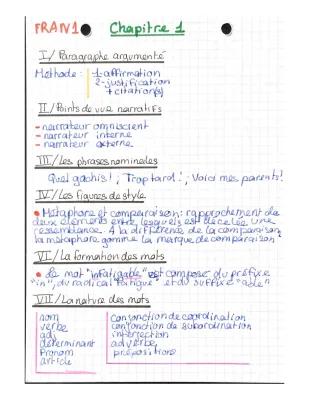 FRAN1 Chapitre 1
I/ Paragraphe argumenté
Méthode : 1-affirmation
2-justification
+ citation(s)
II/ Points de vue narratifs
- narrateur omniscient
- narrateur interne
- narrateur externe
III/ Les phrases nominales
Quel gachis! ; Trop tard! ; Voici mes parents!
IV/ Les figures de style
• Métaphore et comparaison: rapprochement de
deux éléments entre lesquels est décelée une
ressemblance. A la différence de la comparaison,
la métaphore gomme la marque de comparaison.
VI/ La formation des mots
• Le mot "infatigable" est composer du préfixe
"in", du radical "fatigue" et du suffixe "able"
VII/ La nature des mots
nom
verbe
adj
déterminant
Pronom
article
conjonction de coordination
conjonction de subordination
interjection
adverbe
prépositions